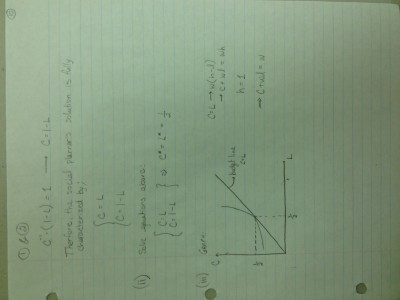 ① Q③
C⁻¹·(1-L) = 1 → C = 1-L
Therefore the social planner's solution is fully
characterized by:
{ C = L
{ C = 1-L
(ii) Solve equations above:
{ C=L
{ C=1-L } ⇒ C* = L* = 1/2
(iii) Graph:
C
budget line
C=L
1/2
1/2
L
C=L → w(h-l)
→ C+wl = wh
h=1
→ C+wl = w